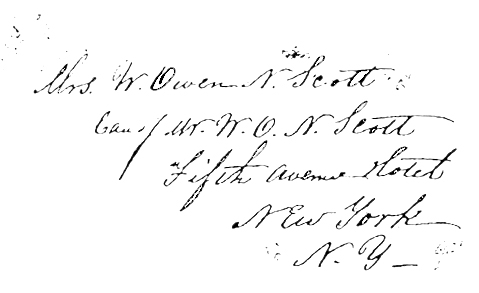 Mrs. W. Owen N. Scott
Care of Mr. W. O. N. Scott
Fifth Avenue Hotel
New York
N. Y.